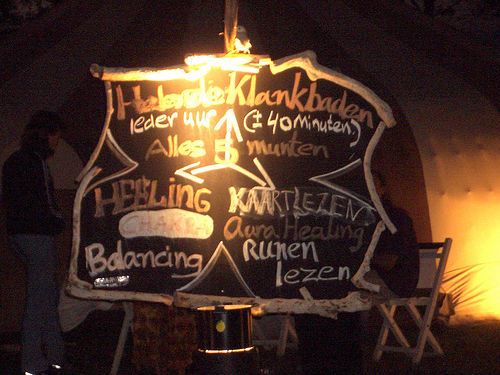 Helende Klankbaden
Ieder uur (± 40 Minuten)
Alles 5 munten
HEELING KAARTLEZEN
CHAKRA Aura Healing
Balancing RUNEN
lezen